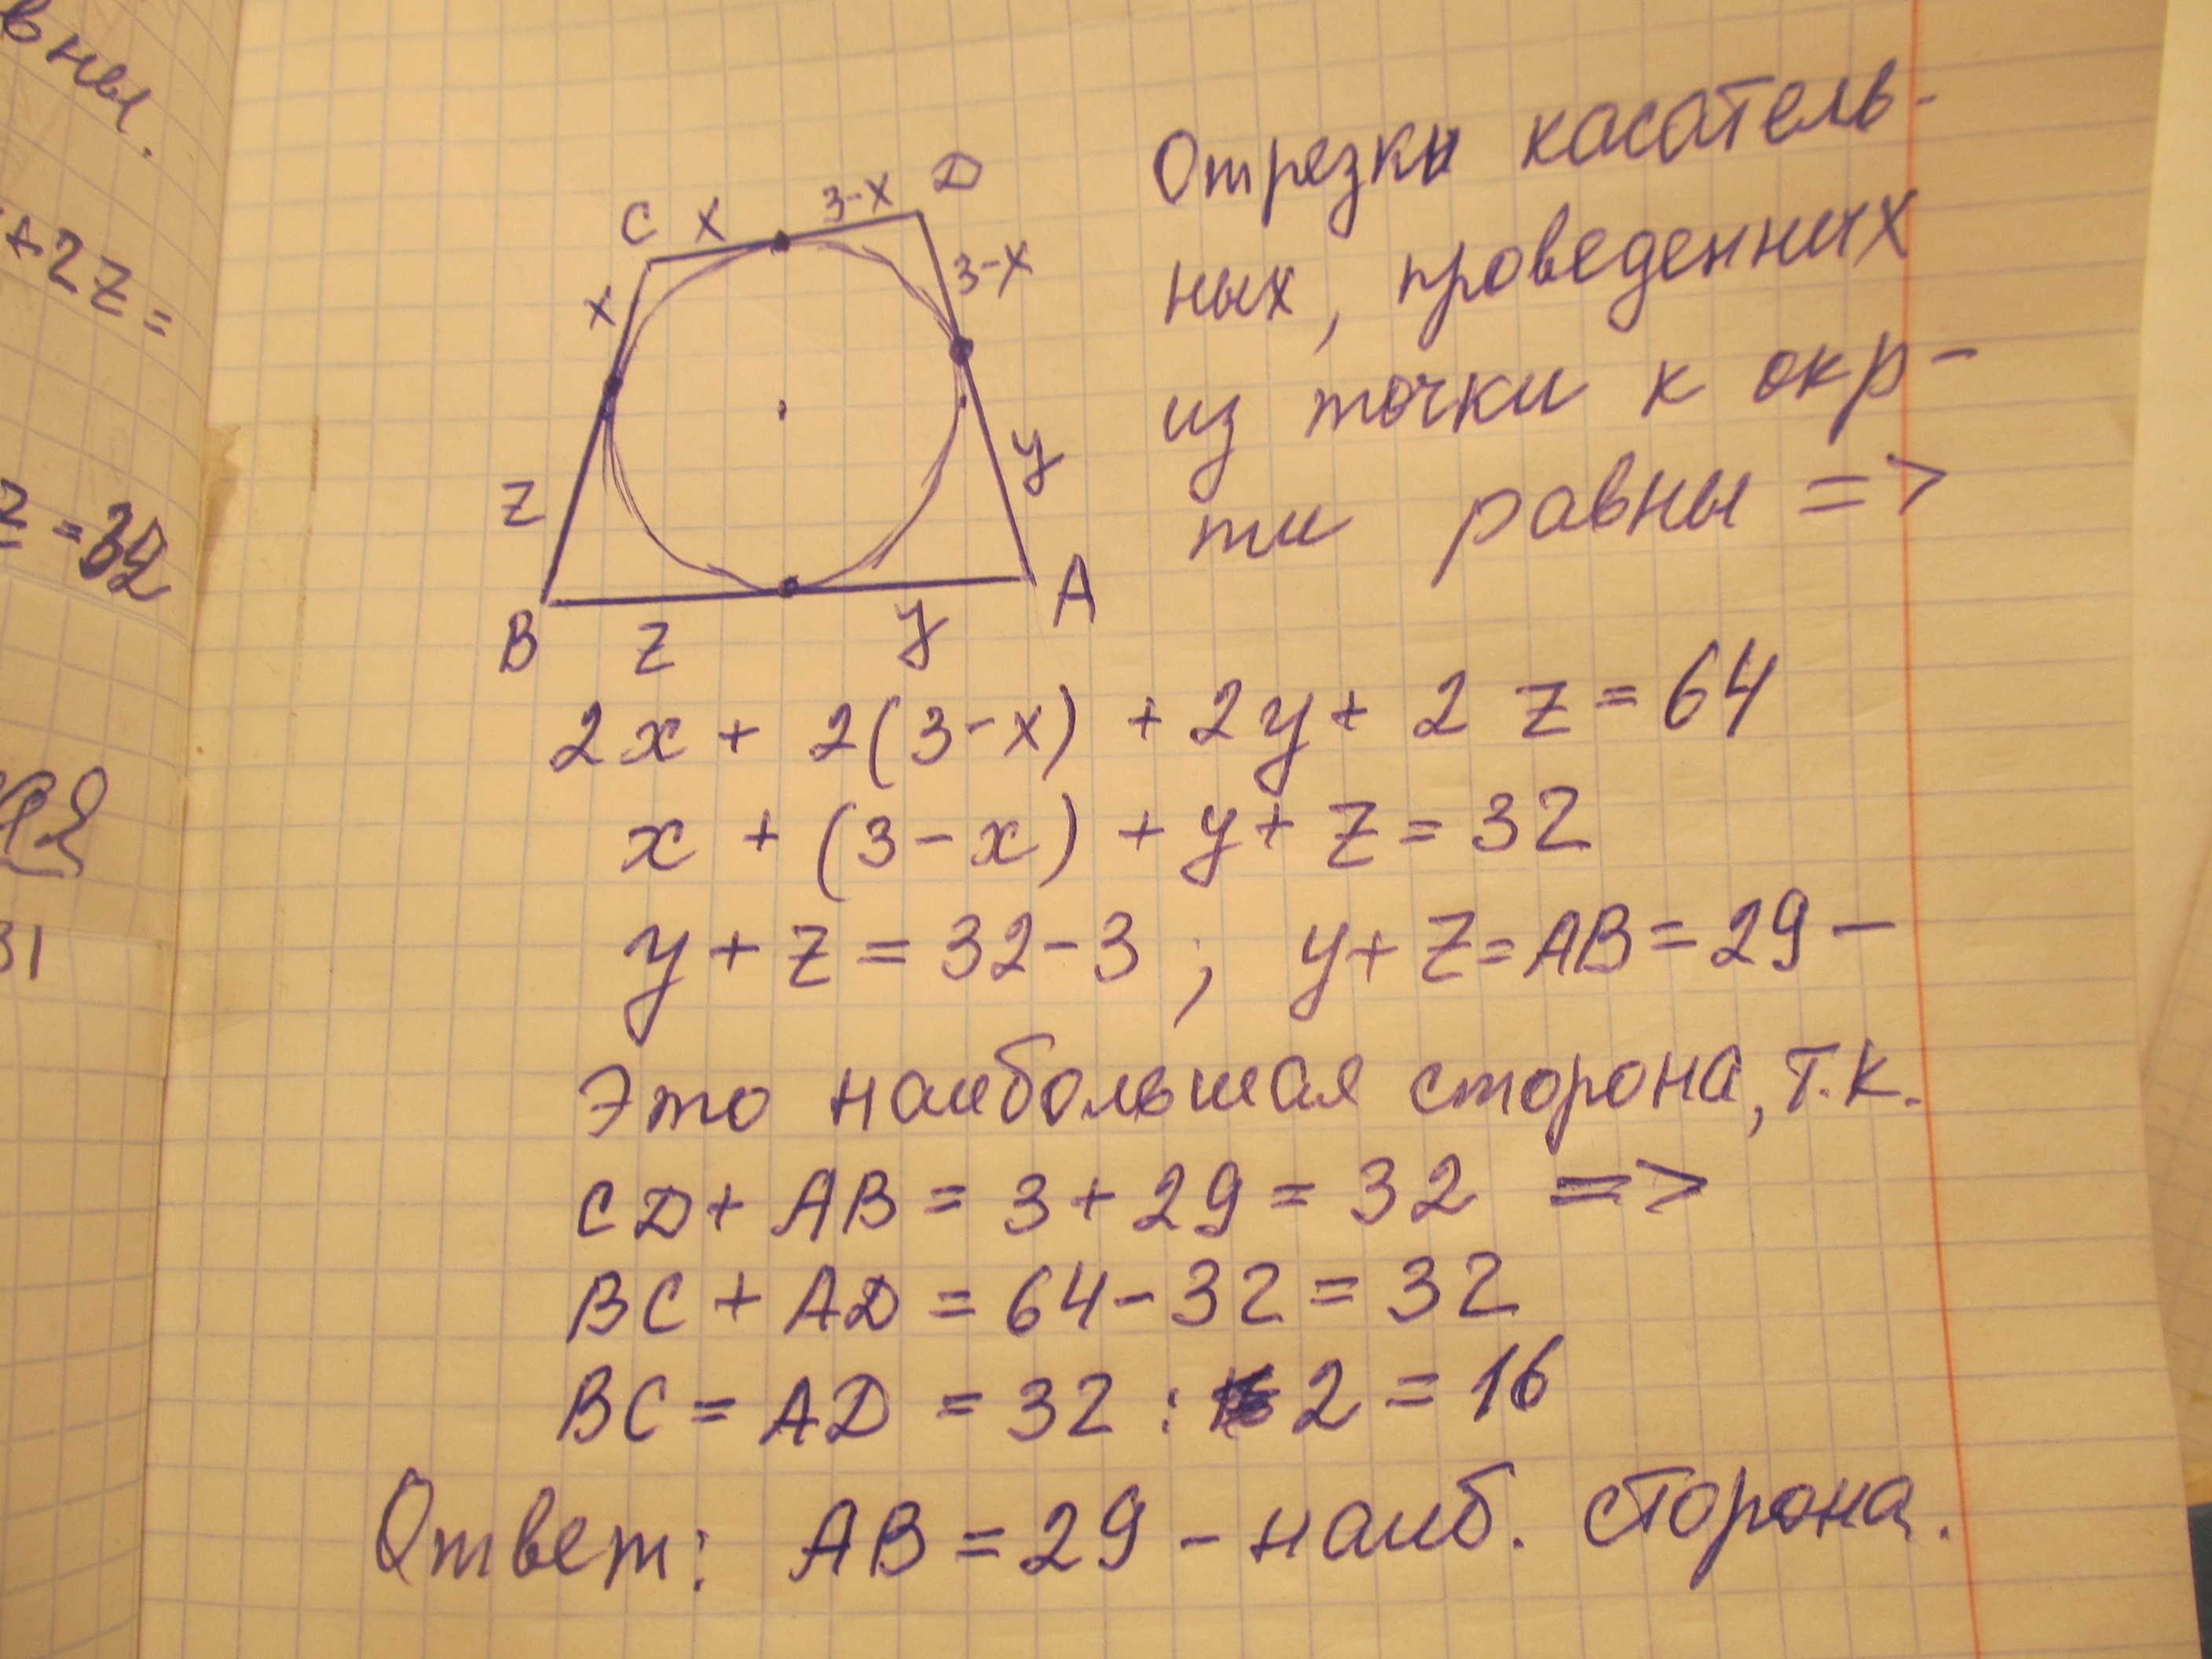 вны.
+2z=
z=32
31
C x 3-x D
x 3-x
z y
B z y A
Отрезки касатель-
ных, проведенних
из точки к окр-
ти равны =>
2x + 2(3-x) + 2y + 2 z = 64
x + (3-x) + y + z = 32
y + z = 32-3 ; y + z = AB = 29 –
Это наибольшая сторона, т.к.
CD + AB = 3 + 29 = 32 =>
BC + AD = 64 - 32 = 32
BC = AD = 32 : 2 = 16
Ответ: AB = 29 - наиб. сторона.